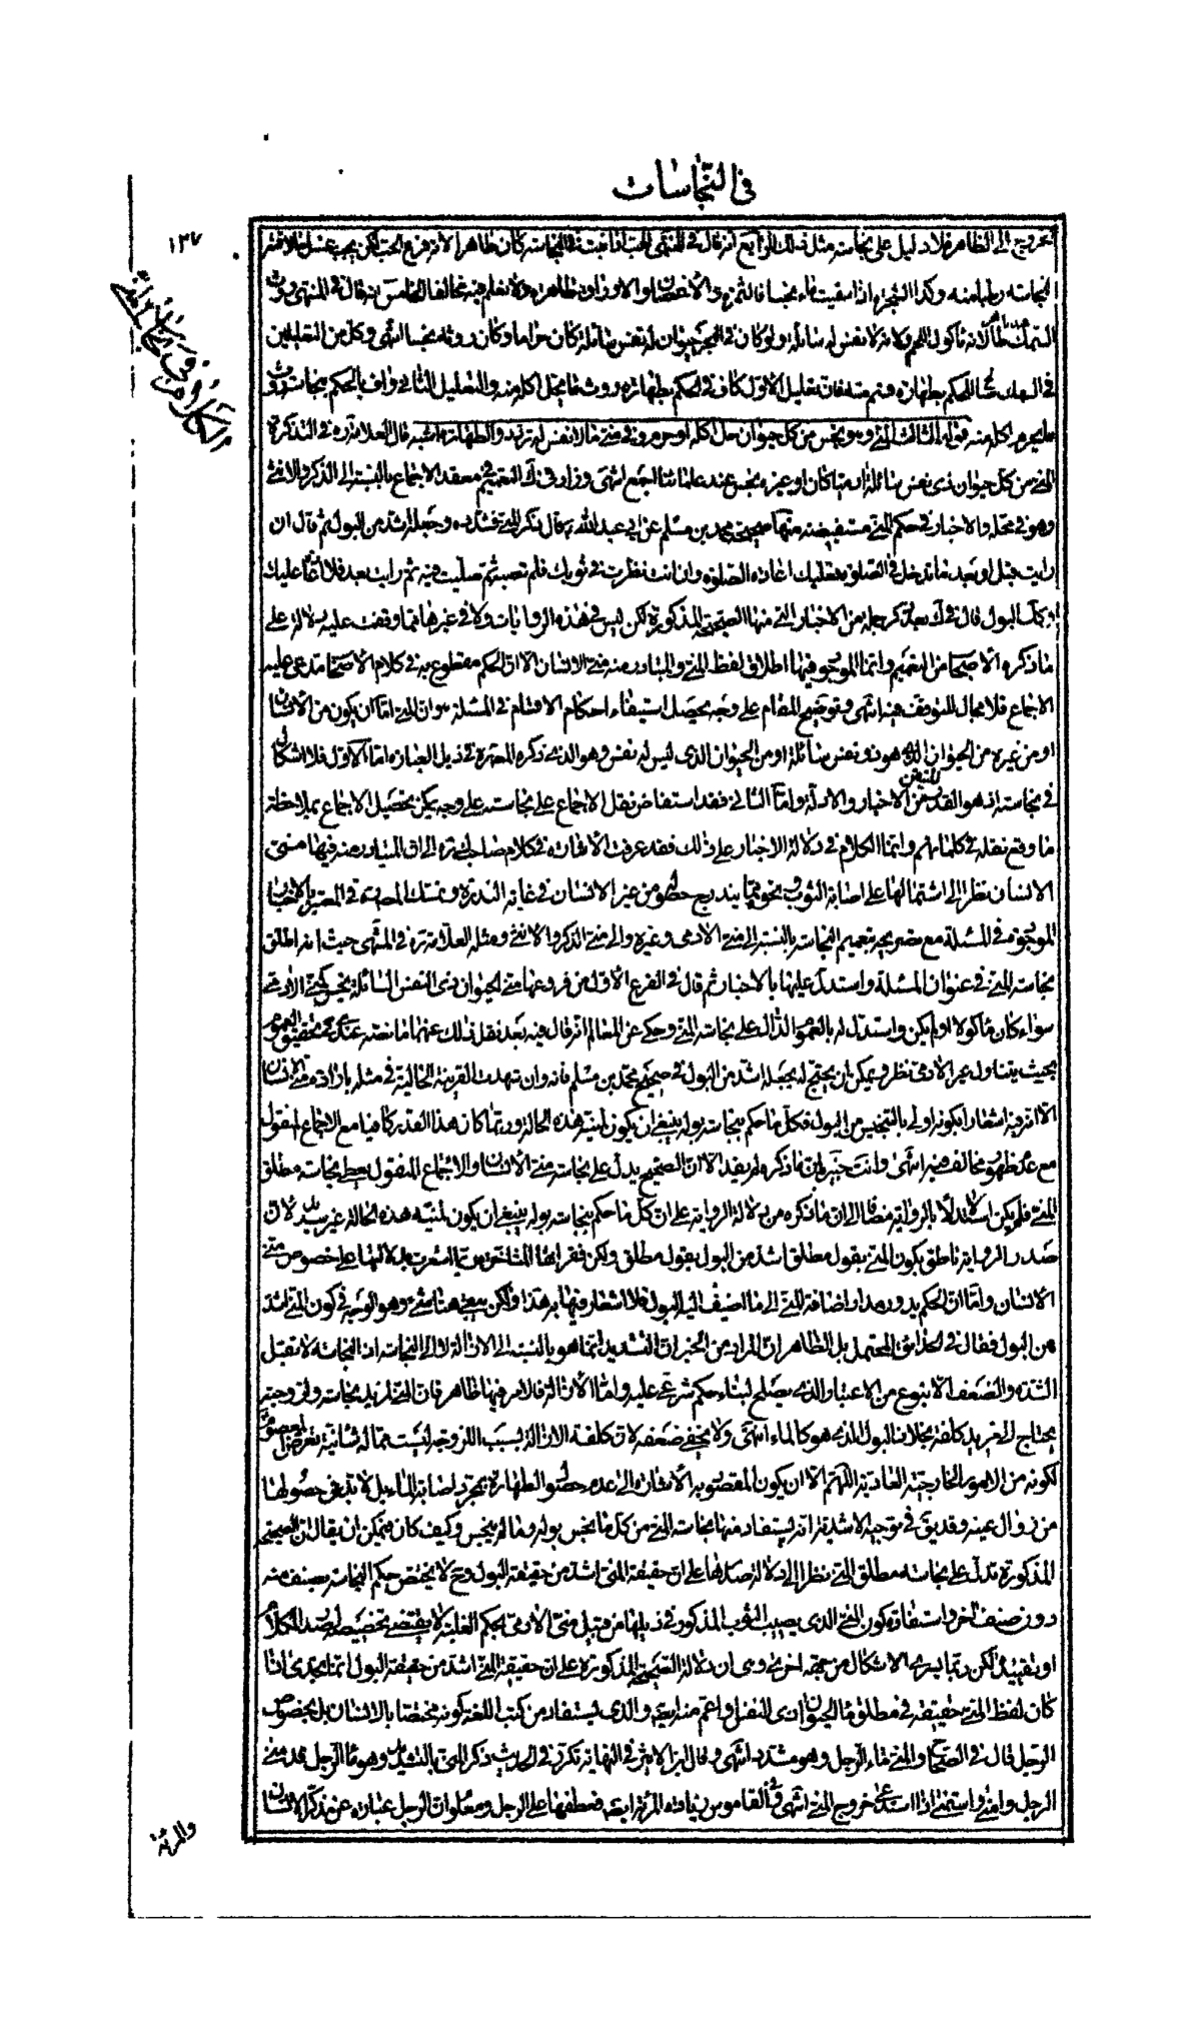 في النجاسات
١٣٧
الكلام في نجاسة المني
الخروج الى الظاهر فلا دليل على نجاسته مثل ذلك الرابع انه قال في المنتهى الحب اذا نبت في النجاسة كان ظاهر الانه فرع الحب لكن يجب غسل ما لاقته
النجاسة رطبا منه وكذا الشجرة اذا سقيت ماء نجسا فالثمرة والأغصان والاوراق طاهرة ولا نعلم فيه مخالفا الخامس انه قال في المنتهى روث
السمك طاهر لانه مأكول اللحم ولانه لا نفس له سائلة ولو كان في البحر حيوان له نفس سائلة كان حراما وكان روثه نجسا انتهى وكل من التعليلين
في السمك للحكم بطهارة فان تعليل الأول كاف في الحكم بطهارة روث ما يحل اكله منه والتعليل الثاني واف بالحكم بنجاسة روث
ما يحرم اكله منه قوله الثالث المني وهو نجس من كل حيوان حل اكله او حرم وفي مني ما لا نفس له تردد والطهارة اشبه قال العلامة ره في التذكرة
المني من كل حيوان ذي نفس سائلة ادميا كان او غيره نجس عند علمائنا اجمع انتهى وزاد في ذلك التعميم في معقد الاجماع بالنسبة الى الذكر والانثى
وهو في محله والاخبار في حكم المني مستفيضة منها صحيحة محمد بن مسلم عن ابي عبد الله قال ذكر المني فشدده وجعله اشد من البول ثم قال ان
رايت قبل او بعد ما تدخل في الصلوة فعليك اعادة الصلوة وان انت نظرت في ثوبك فلم تصبه ثم صليت فيه ثم رايت بعد فلا اعادة عليك
وكذلك البول قال في ك بعد ذكر جملة من الاخبار التي منها الصحيحة المذكورة لكن ليس في هذه الروايات ولا في غيرها مما وقفت عليه دلالة على
ما ذكره الاصحاب من التعميم وانما الموجود فيها اطلاق لفظ المني والمتبادر منه مني الانسان الا ان الحكم مقطوع به في كلام الاصحاب مدعى عليه
الاجماع فلا مجال للتوقف فيه انتهى وتوضيح المقام على وجه يحصل استيفاء احكام الاقسام في المسئلة هو ان المني اما ان يكون من الانسان
او من غيره من الحيوان الذي هو ذو نفس سائلة او من الحيوان الذي ليس له نفس وهو الذي ذكره المص ره في ذيل العبارة اما الأول فلا اشكال
في نجاسته اذ هو القدر المتيقن من الاخبار والادلة واما الثاني فقد استفاض نقل الاجماع على نجاسته على وجه يمكن تحصيل الاجماع بملاحظة
ما وقع نقله في كلماتهم وانما الكلام في دلالة الاخبار على ذلك فقد عرفت الأشارة في كلام صاحب ك ره الى ان المتبادر منه فيها مني
الانسان نظرا الى اشتمالها على اصابة الثوب ونحوه مما يندرج حصوله من غير الانسان في غاية الندرة وتمسك المص ره في المعتبر بالاخبار
الموجودة في المسئلة مع تصريحه بتعميم النجاسة بالنسبة الى مني الآدمي وغيره والى مني الذكر والانثى ومثله العلامة ره في المنتهى حيث انه اطلق
نجاسة المني في عنوان المسئلة واستدل عليها بالاخبار ثم قال في الفرع الأول من فروعها مني الحيوان ذي النفس السائلة نجس كمني الآدمي
سواء كان مأكولا او لم يكن واستدل له بالعموم الدال على نجاسة المني وحكي عن المعالم انه قال فيه بعد نقل ذلك عنهما ما نصه عندي في تحقيق العموم
بحيث يتناول غير الآدمي نظر ويمكن ان يحتج له بجعله اشد من البول في صحيح محمد بن مسلم فانه وان شهدت القرينة الحالية في مثله بارادة مني الانسان
الا ان فيه اشعارا بكونه اولى بالتنجيس من البول فكل ما حكم بنجاسة بوله ينبغي ان يكون لمنيه هذه الحالة وربما كان هذا القدر كافيا مع الاجماع المنقول
مع عدم ظهور مخالف فيه انتهى وانت خبير بان ما ذكره لم يفد الا ان الصحيح يدل على نجاسة مني الانسان والاجماع المنقول يعطي نجاسة مطلق
المني فلم يكن استدلالا بالرواية مضافا الى ان ما ذكره من دلالة الرواية على ان كل ما حكم بنجاسة بوله ينبغي ان يكون لمنيه هذه الحالة غير سديد لان
صدر الرواية ناطق بكون المني بقول مطلق اشد من البول بقول مطلق ولكن فقراتها المتأخرة ربما اشعرت بدلالتها على خصوص مني
الانسان واما ان الحكم يدور مدار اضافة المني الى ما اضيف اليه البول فلا اشعار فيها به هذا ولكن يبقى هنا شيء وهو الوجه في كون المني اشد
من البول فقال في الحدائق المحتمل بل الظاهر ان المراد من الخبر ان التشديد انما هو بالنسبة الى الازالة لا الى النجاسة اذ النجاسة لا تقبل
الشدة والضعف الا بنوع من الاعتبار الذي يصلح لبناء حكم شرعي عليه واما الازالة فلا مر فيها ظاهر فان المني لمزيد نجاسته ولزوجته
يحتاج الى مزيد كلفة بخلاف البول الذي هو كالماء انتهى ولا يخفى ضعفه لان كلفة الازالة بسبب اللزوجة ليست مما له شانية تعرض المعصوم
لكونه من الامور الخارجية العادية اللهم الا ان يكون المقصود به الأشارة الى عدم حصول الطهارة بمجرد اصابة الماء بل لا بد في حصولها
من زوال عينه وقد يق في توجيه الاشدية انه يستفاد منها نجاسة المني من كل ما نجس بوله وما لم ينجس وكيف كان فيمكن ان يقال ان الصحيحة
المذكورة تدل على نجاسة مطلق المني نظرا الى دلالة صدرها على ان حقيقة المني اشد من حقيقة البول وح لا يختص حكم النجاسة بصنف منه
دون صنف اخر واستفادة كون المني الذي يصيب الثوب المذكور في ذيلها من قبيل مني الآدمي بحكم الغلبة لا يقتضي تخصيصه لصدر الكلام
او تقييده لكن ربما يسري الاشكال من جهة اخرى وهي ان دلالة الصحيحة المذكورة على ان حقيقة المني اشد من حقيقة البول انما يجدي اذا
كان لفظ المني حقيقة في مطلق ماء الحيوان ذي النفس او اعم منه اريد والذي يستفاد من كتب اللغة كونه مختصا بالانسان بل بخصوص
الرجل قال في الصحاح والمني ماء الرجل وهو مشدد انتهى وقال ابن الاثير في النهاية تكرر في الحديث ذكر المني بالتشديد وهو ماء الرجل قد منى
الرجل وامنى واستمنى اذا استدعى خروج المني انتهى وفي القاموس زيادة المرئة رابعة فعطفها على الرجل ومعلوم ان الرجل عبارة عن مذكر الانسان
والمرئة